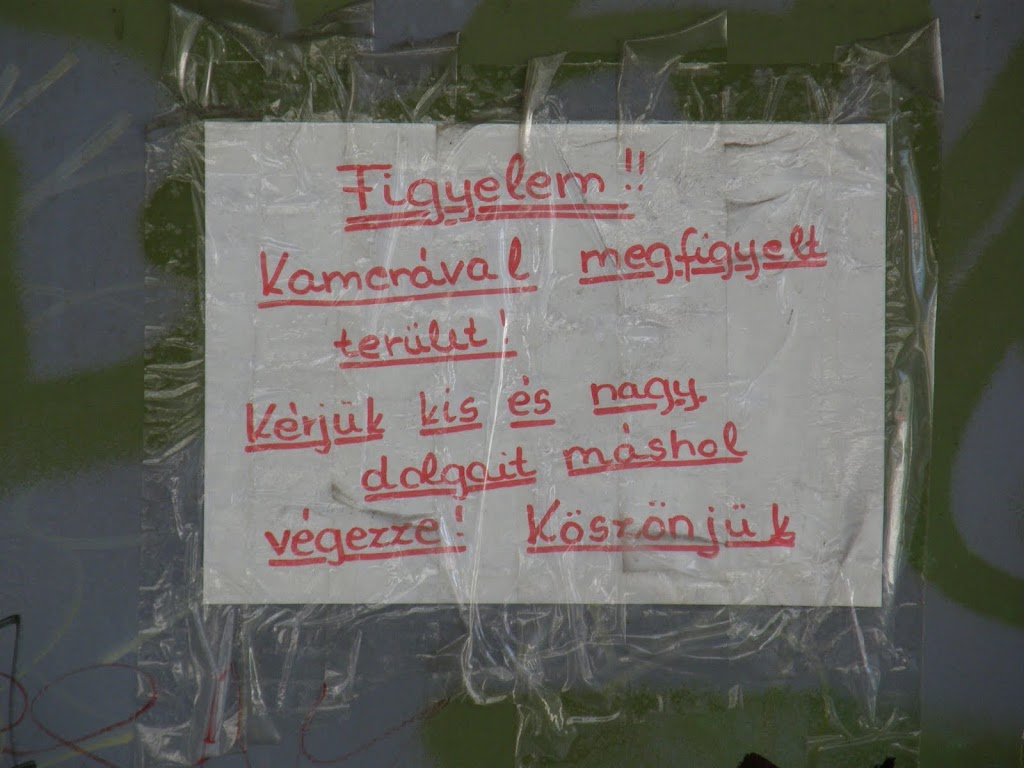 Figyelem!!
Kamerával megfigyelt
terület!
Kérjük kis és nagy
dolgait máshol
végezze! Köszönjük